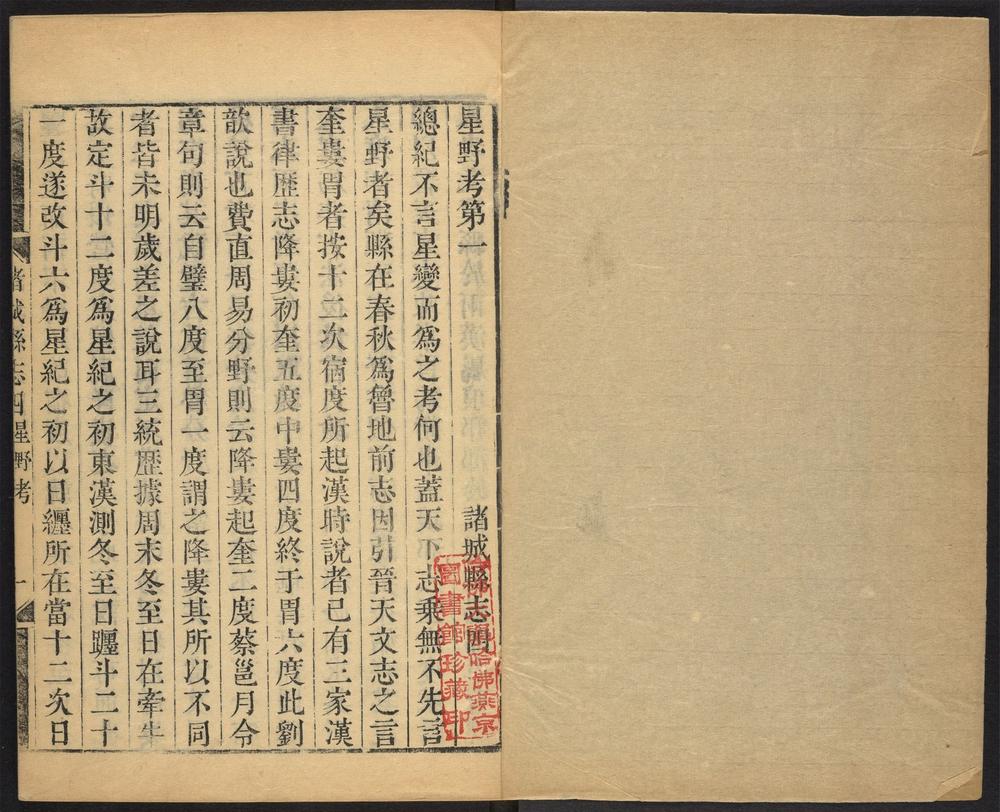 星野考第一 諸城縣志四
總紀不言星變而爲之考何也蓋天下志乘無不先言
星野者矣縣在春秋爲魯地前志因引晉天文志之言
奎婁胃者按十二次宿度所起漢時說者已有三家漢
書律歷志降婁初奎五度中婁四度終于胃六度此劉
歆說也費直周易分野則云降婁起奎二度蔡邕月令
章句則云自壁八度至胃一度謂之降婁其所以不同
者皆未明歲差之說耳三統歷據周末冬至日在牽牛
故定斗十二度爲星紀之初東漢測冬至日躔斗二十
一度遂改斗六爲星紀之初以日纏所在當十二次日
諸城縣志四星野考 一
哈佛燕京
圖書館珍藏印